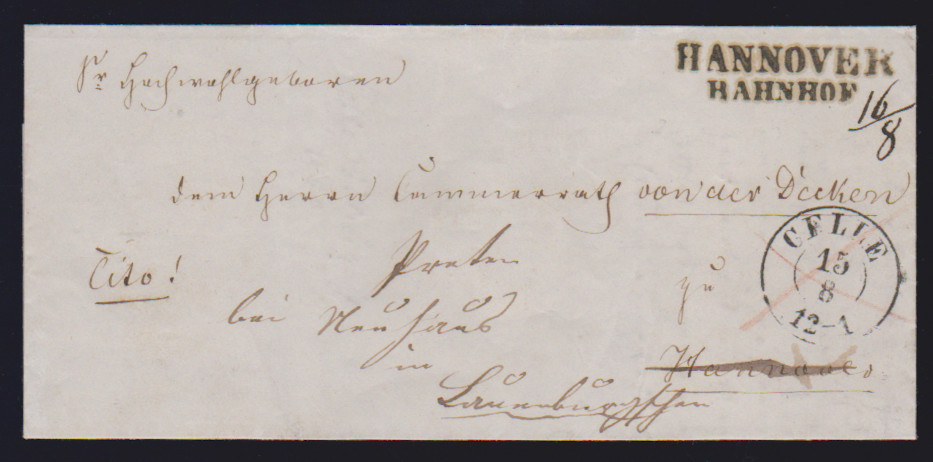 Sr Hochwohlgeboren
HANNOVER
BAHNHOF
16/8
dem Herrn Cammerrath von der Decken
CELLE
15
8
12-1
Cito!
Preten
zu
bei Neuhaus
in
Hannover
Lauenburgschen